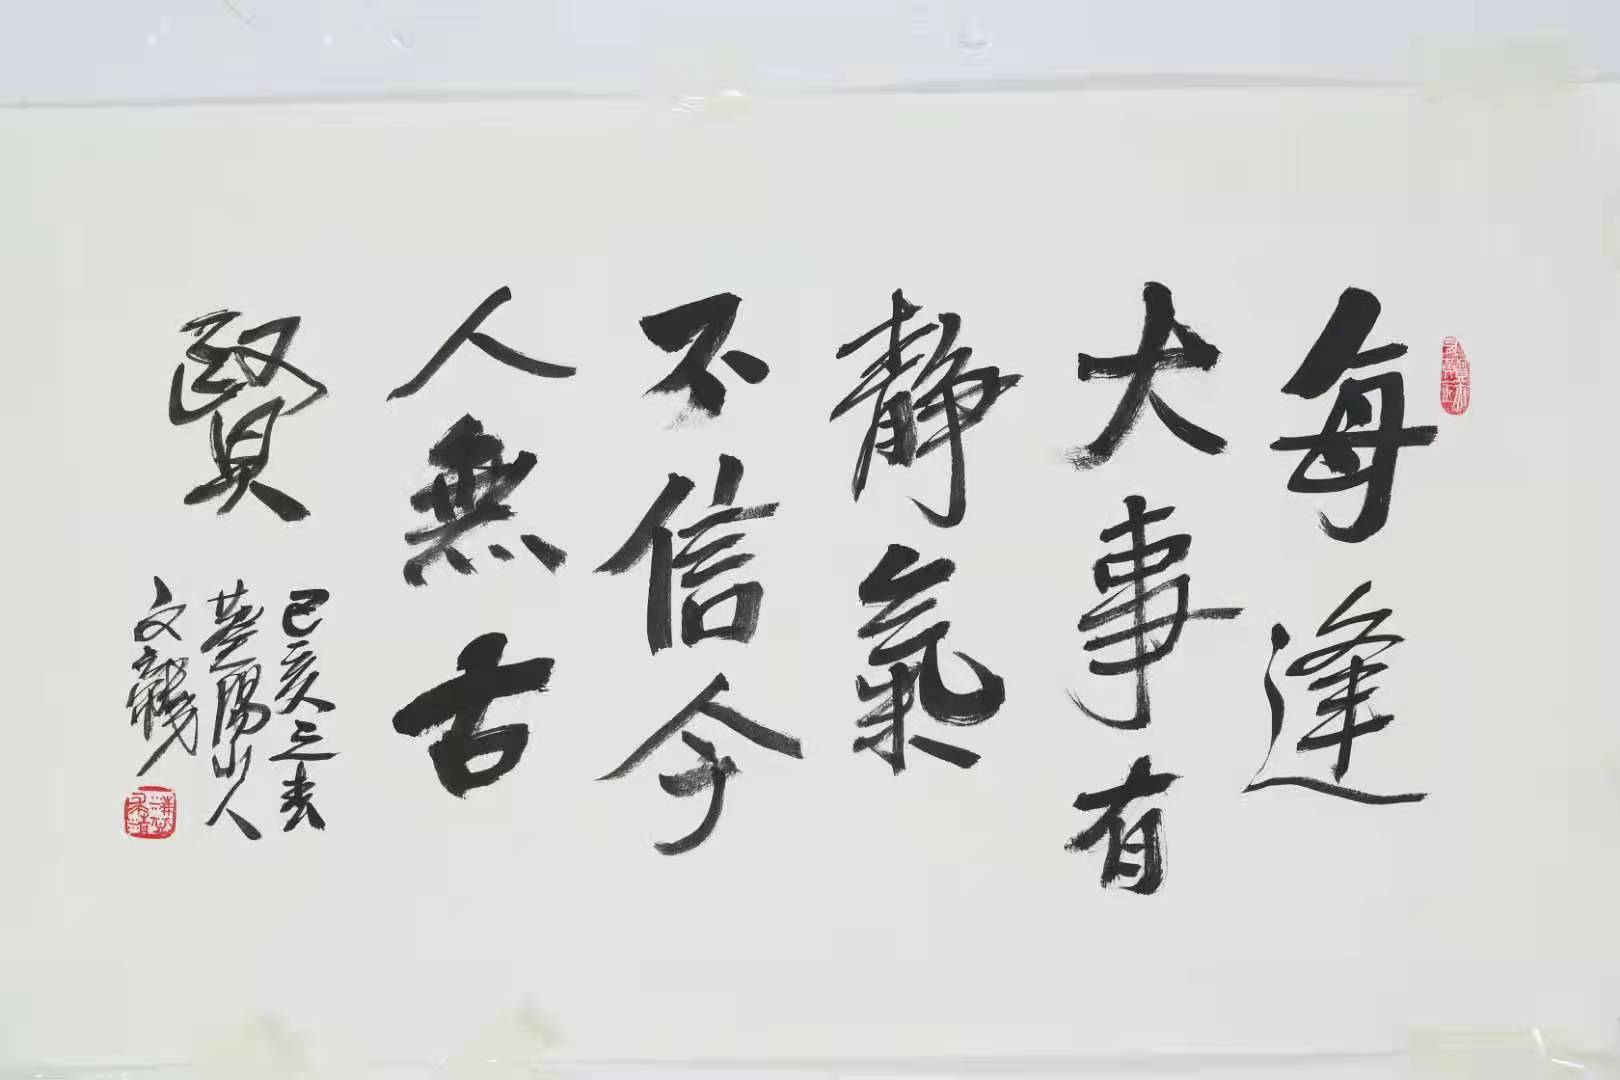 每逢
大事有
静氣
不信今
人無古
賢
己亥三春
楚陽山人
文龍